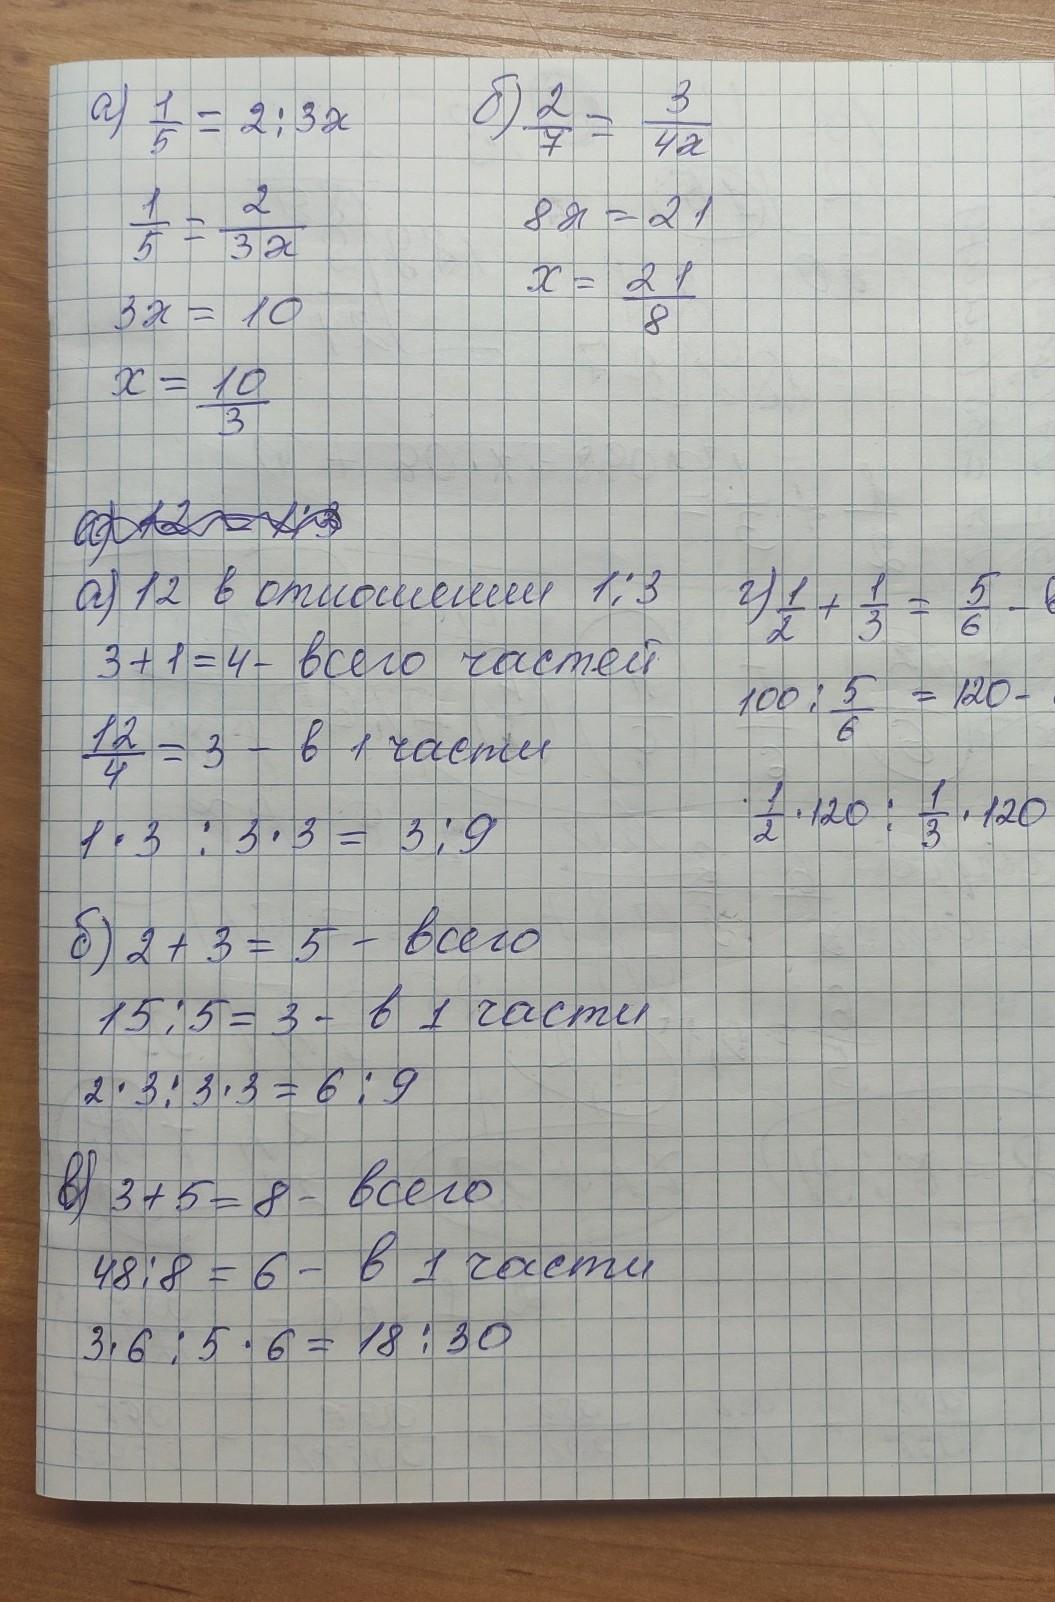 а) 1/5 = 2 : 3x
1/5 = 2/3x
3x = 10
x = 10/3
б) 2/7 = 3/4x
8x = 21
x = 21/8
а) 12 = 1:3
а) 12 в отношении 1:3
3+1=4- всего частей
12/4 = 3 - в 1 части
1·3 : 3·3 = 3:9
б) 2+3 = 5 - всего
15:5 = 3 - в 1 части
2·3 : 3·3 = 6:9
в) 3+5=8- всего
48:8 = 6 - в 1 части
3·6 : 5·6 = 18:30
г) 1/2 + 1/3 = 5/6 -
100 : 5/6 = 120 -
1/2 · 120 : 1/3 · 120